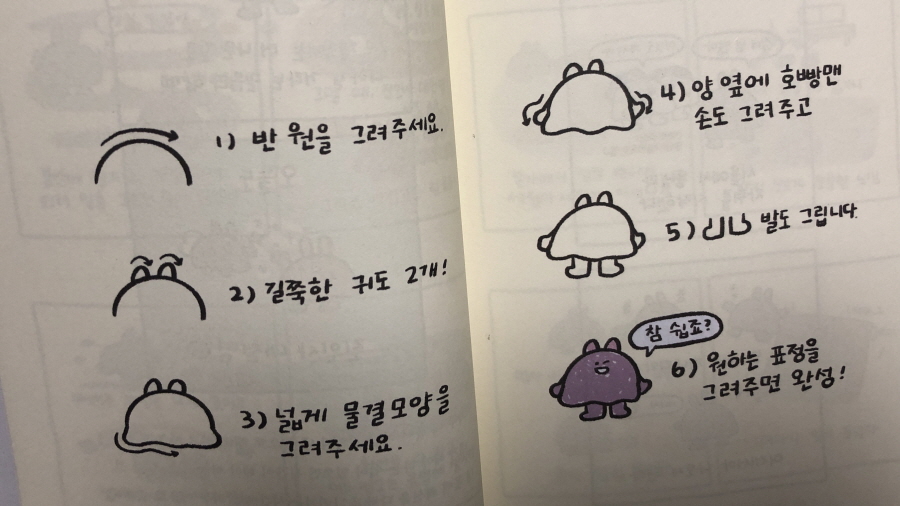 1) 반 원을 그려주세요.
2) 길쭉한 귀도 2개!
3) 넓게 물결모양을
그려주세요.
4) 양 옆에 호빵맨
손도 그려주고
5) 발도 그립니다.
참 쉽죠?
6) 원하는 표정을
그려주면 완성!